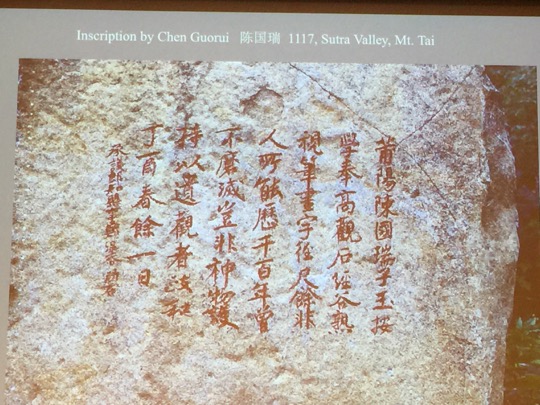 Inscription by Chen Guorui 陈国瑞 1117, Sutra Valley, Mt. Tai
莆陽陳國瑞子玉按
學奉高觀石經谷熟
視筆畫字徑尺餘非
人所能歷千百年曾
不磨滅豈非神物護
持以遺觀者政和
丁酉春餘一日